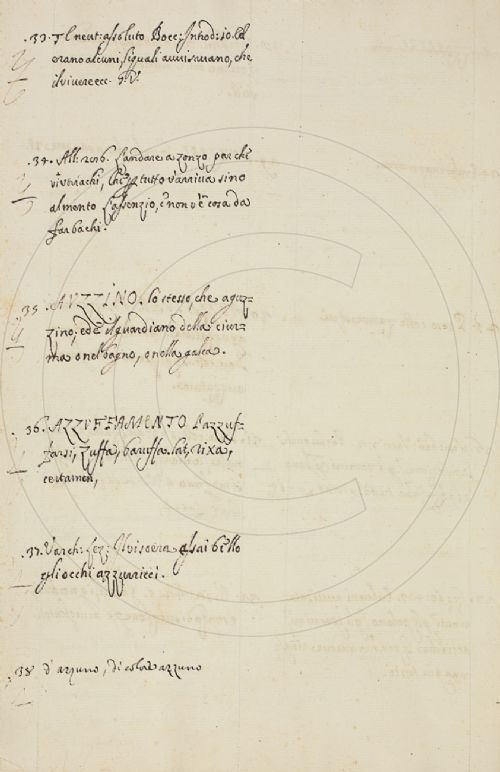 33. Il neut: assoluto Bocc: Introd: 10. Ed
erano alcuni, li quali avvisavano, che
il vivere ec. G. V.
34. All: 226. L'andare a zonzo par che
vi vi fusse tutto v'arriva sino
al monte l'assenzio, e non v'è cosa da
farbachi.
35. AVZZINO. lo stesso, che aguz=
zino, ed è il guardiano della ciur=
ma o nel bagno, o nella galea.
36. AZZVFFAMENTO. l'azzuf=
farsi, Zuffa, baruffa. lat, rixa,
certamen,
37. Varch: Il viso era assai bello
gli occhi azzurricci.
38 d'azzurro, di color azzurro